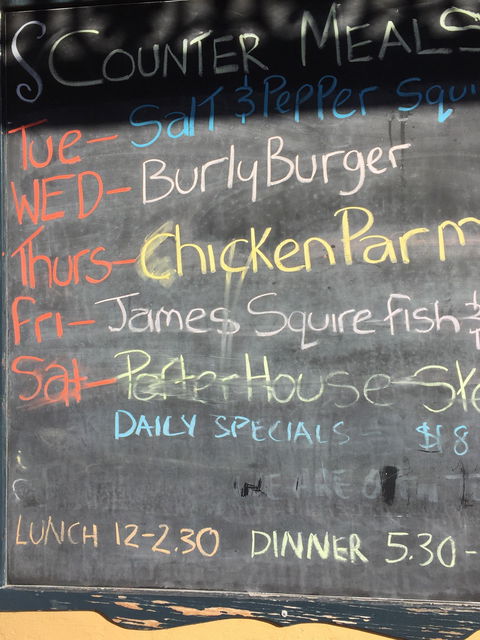 $ COUNTER MEALS
Tue- Salt & Pepper Squi
WED- Burly Burger
Thurs- Chicken Parm
Fri- James Squire fish &
Sat- Porter House Ste
DAILY SPECIALS - $18
LUNCH 12-2.30 DINNER 5.30-